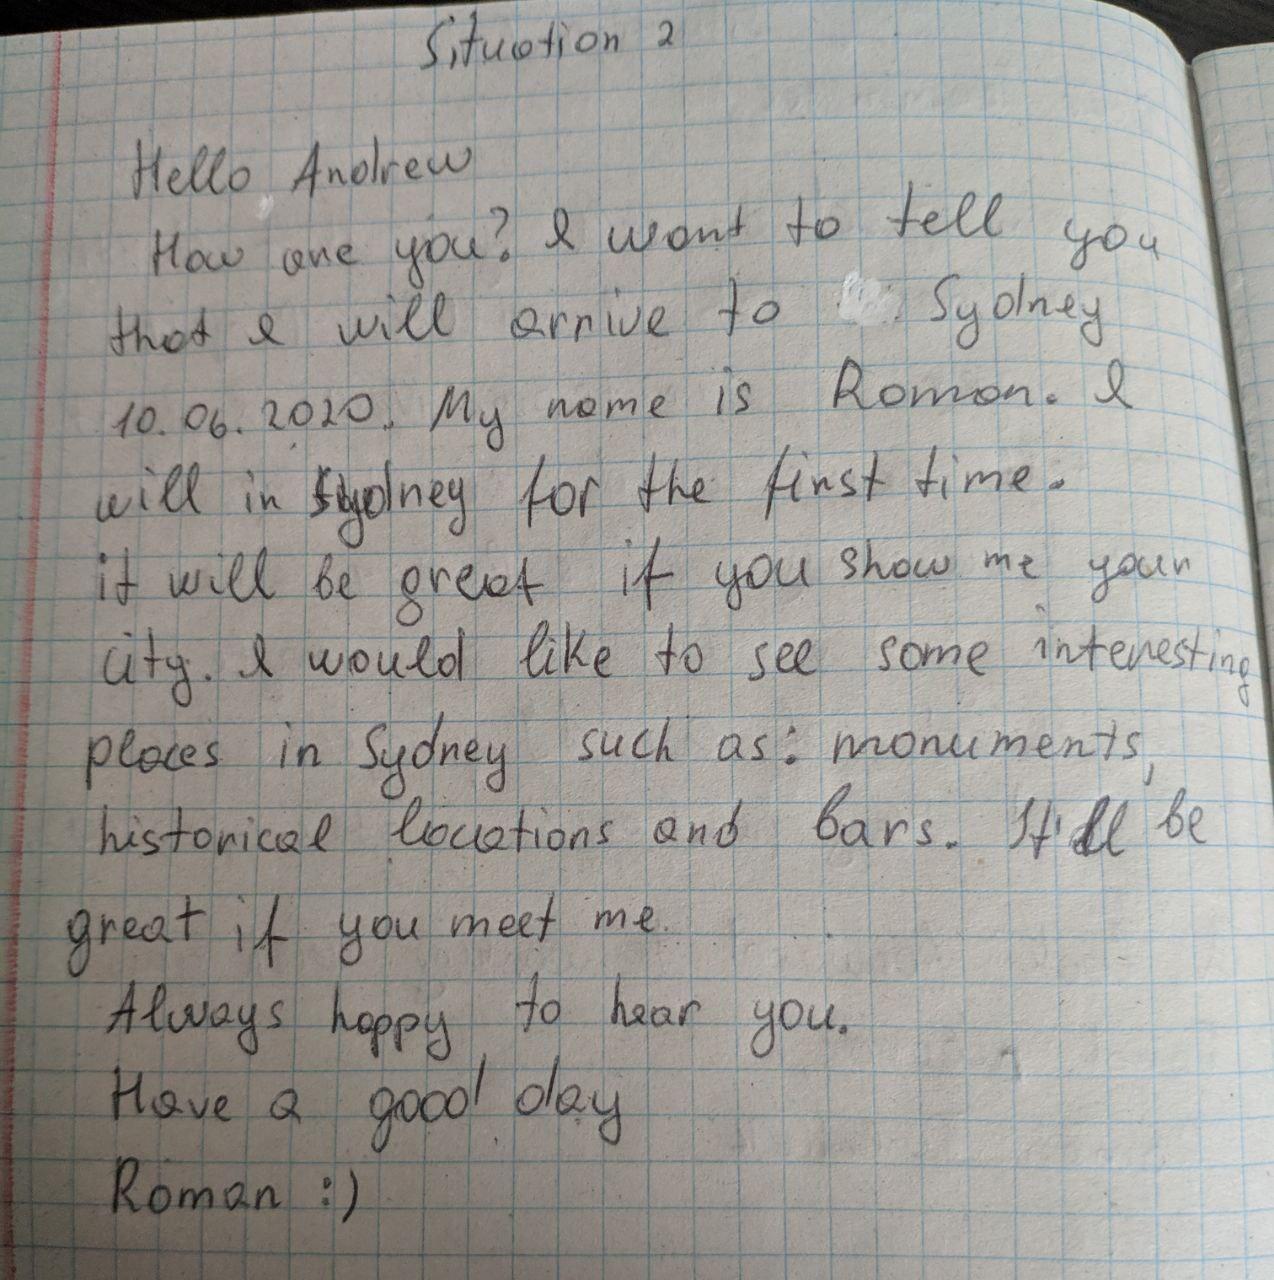 Situation 2
Hello Andrew
How are you? I want to tell you
that I will arrive to Sydney
10.06.2020. My name is Roman. I
will in Sydney for the first time.
it will be great if you show me your
city. I would like to see some interesting
places in Sydney such as: monuments,
historical locations and bars. It'll be
great if you meet me.
Always happy to hear you.
Have a good day
Roman :)